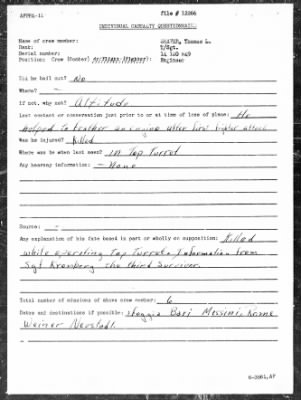 AFPPA-11
File # 12266
INDIVIDUAL CASUALTY QUESTIONNAIRE
Name of crew member: Thomas L.
Rank: T/Sgt.
Serial number: 14 120
Position: Crew (Bomber) Engineer
Did he bail out? No
Where? -
If not, why not? Altitude
Last contact or conversation just prior to or at time of loss of plane: He
helped to feather an engine after first fighter attack
Was he injured? Killed
Where was he when last seen? in Top Turret
Any hearsay information: - None
Source: -
Any explanation of his fate based in part or wholly on supposition: Killed
while operating Top Turret. Information from
Sgt the third survivor.
Total number of missions of above crew member: 6
Dates and destinations if possible: Foggia Bari Messini
Weiner Neustadt.
6-3861,AF